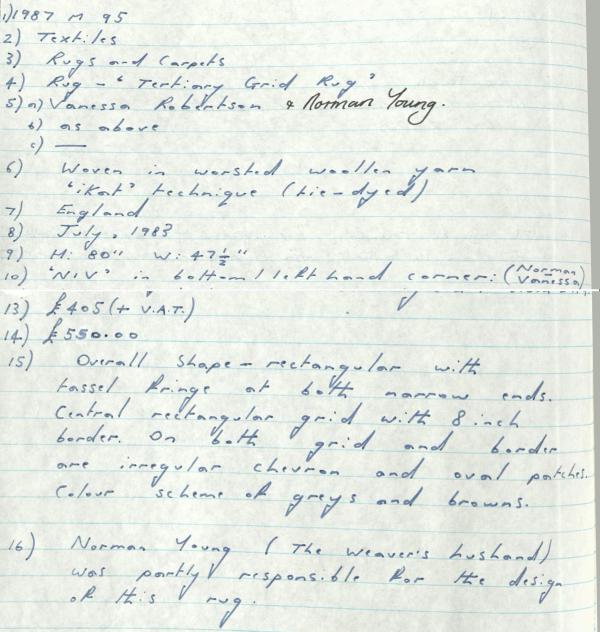 1) 1987 M 95
2) Textiles
3) Rugs and Carpets
4) Rug - "Tertiary Grid Rug"
5) a) Vanessa Robertson & Norman Young.
b) as above
c) —
6) Woven in worsted woollen yarn
"ikat" technique (tie-dyed)
7) England
8) July, 1983
9) H: 80" W: 47½"
10) "N/V" in bottom left hand corner: (Norman
Vanessa)
13) £405 (+ V.A.T.)
14) £550.00
15) Overall shape - rectangular with
tassel fringe at both narrow ends.
Central rectangular grid with 8 inch
border. On both grid and border
are irregular chevron and oval patches.
Colour scheme of greys and browns.
16) Norman Young (The weaver's husband)
was partly responsible for the design
of this rug.